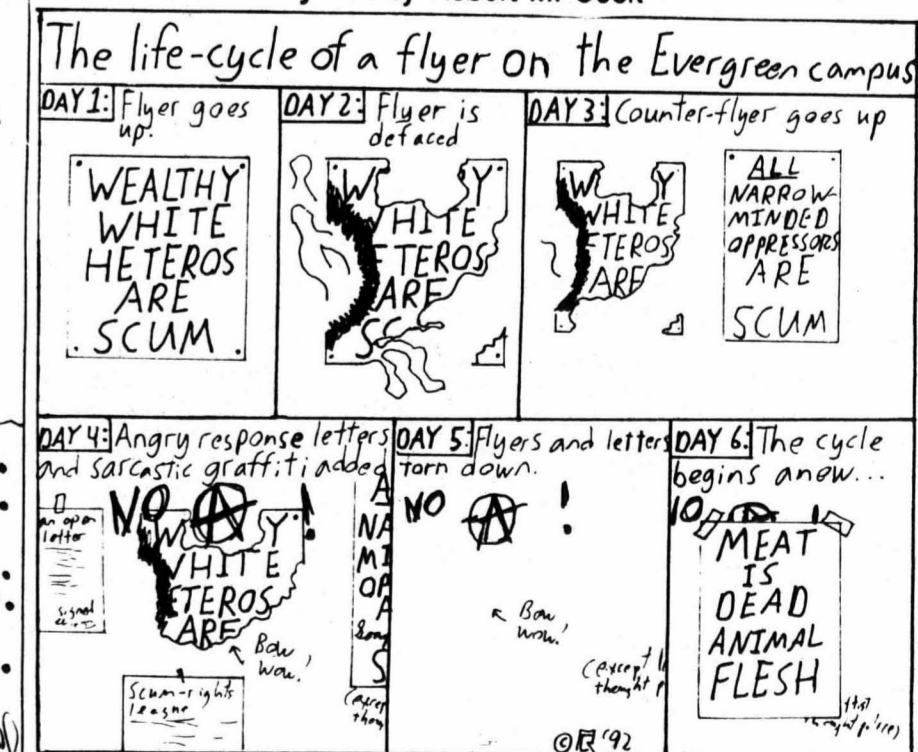 The life-cycle of a flyer on the Evergreen campus
DAY 1: Flyer goes
up.
WEALTHY
WHITE
HETEROS
ARE
SCUM
DAY 2: Flyer is
defaced
W Y
HITE
ETEROS
ARE
SC
DAY 3: Counter-flyer goes up
W Y
WHITE
ETEROS
ARE
ALL
NARROW-
MINDED
OPPRESSORS
ARE
SCUM
DAY 4: Angry response letters
and sarcastic graffiti added
an open
letter
signed
NO A !
W Y
WHITE
ETEROS
ARE
Bow
wow!
Scum-rights
league
A
NA
MI
OP
A
S
(excep
thou
DAY 5: Flyers and letters
torn down.
NO A !
Bow
wow!
(except
thought p
© R '92
DAY 6: The cycle
begins anew...
NO A !
MEAT
IS
DEAD
ANIMAL
FLESH
thought police)